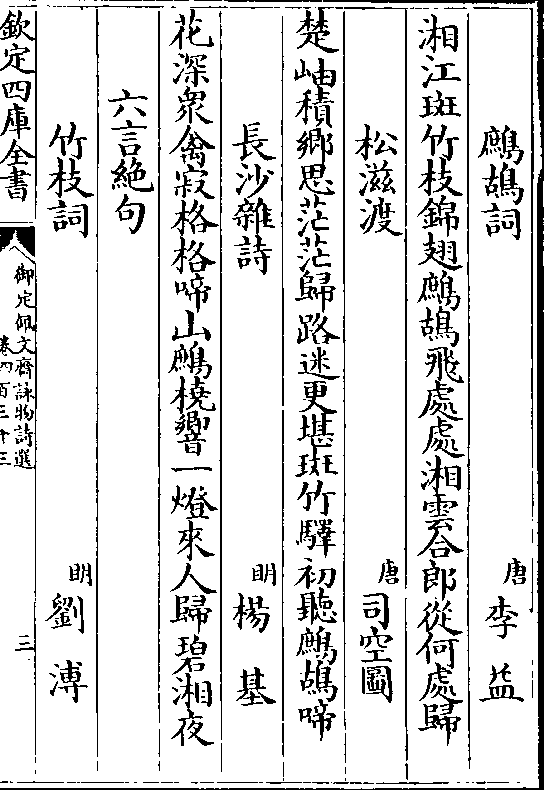 鷓鴣詞　唐　李益
湘江斑竹枝錦翅鷓鴣飛處處湘雲合郎從何處歸
松滋渡　唐　司空圖
楚岫積鄉思茫茫歸路迷更堪斑竹驛初聽鷓鴣啼
長沙雜詩　明　楊基
花深衆禽寂格格啼山鷓橈響一燈來人歸碧湘夜
六言絶句
竹枝詞　明　劉溥
欽定四庫全書
御定佩文齋詠物詩選
卷四百三十三
三